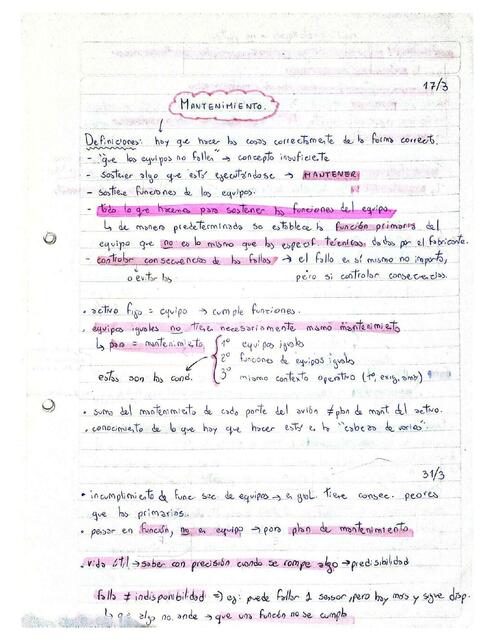 17/3
MANTENIMIENTO.
Definiciones: hay que hacer las cosas correctamente de la forma correcta.
- "que los equipos no fallen" → concepto insuficiente
- sostener algo que está ejecutándose → MANTENER
- sostiene funciones de los equipos.
- todo lo que hacemos para sostener las funciones del equipo.
↳ de manera predeterminada se establece la función primaria del
equipo que no es lo mismo que las especif. técnicas dadas por el fabricante.
- controlar consecuencias de las fallas → el fallo en sí mismo no importa,
o evitarlas pero si controlar consecuencias.
• activo fijo = equipo → cumple funciones.
• equipos iguales no tiene necesariamente mismo mantenimiento
↳ para = mantenimiento 1º equipos iguales
2º funciones de equipos iguales
estas son las cond. 3º mismo contexto operativo (tº, exig, amb)
• suma del mantenimiento de cada parte del avión ≠ plan de mant del activo.
• conocimiento de lo que hay que hacer está en la "cabeza de varios".
31/3
• incumplimiento de func sec de equipos → en gral. tiene consec. peores
que las primarias.
• pensar en función, no en equipo → para plan de mantenimiento
• vida útil → saber con precisión cuando se rompe algo → predisibilidad
falla ≠ indisponibilidad → ej: puede fallar 1 sensor, pero hay mas y sigue disp.
que algo no ande → que una función no se cumpla